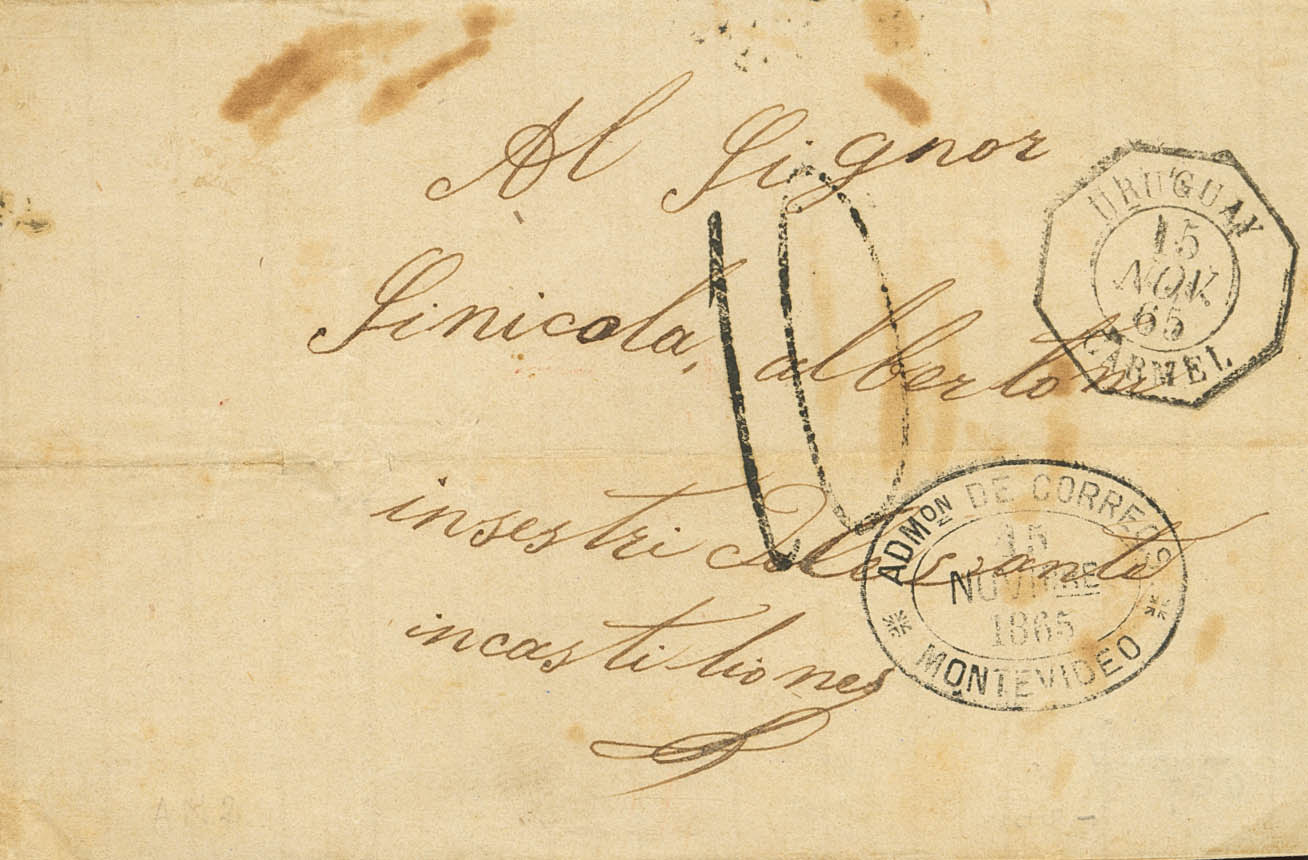 Al Signor
Sinicola, alberto
insestri
incastiliones
10
URUGUAY
15
NOV.
65
CARMEL
ADMON DE CORREOS
15
NOVIBRE
1865
MONTEVIDEO